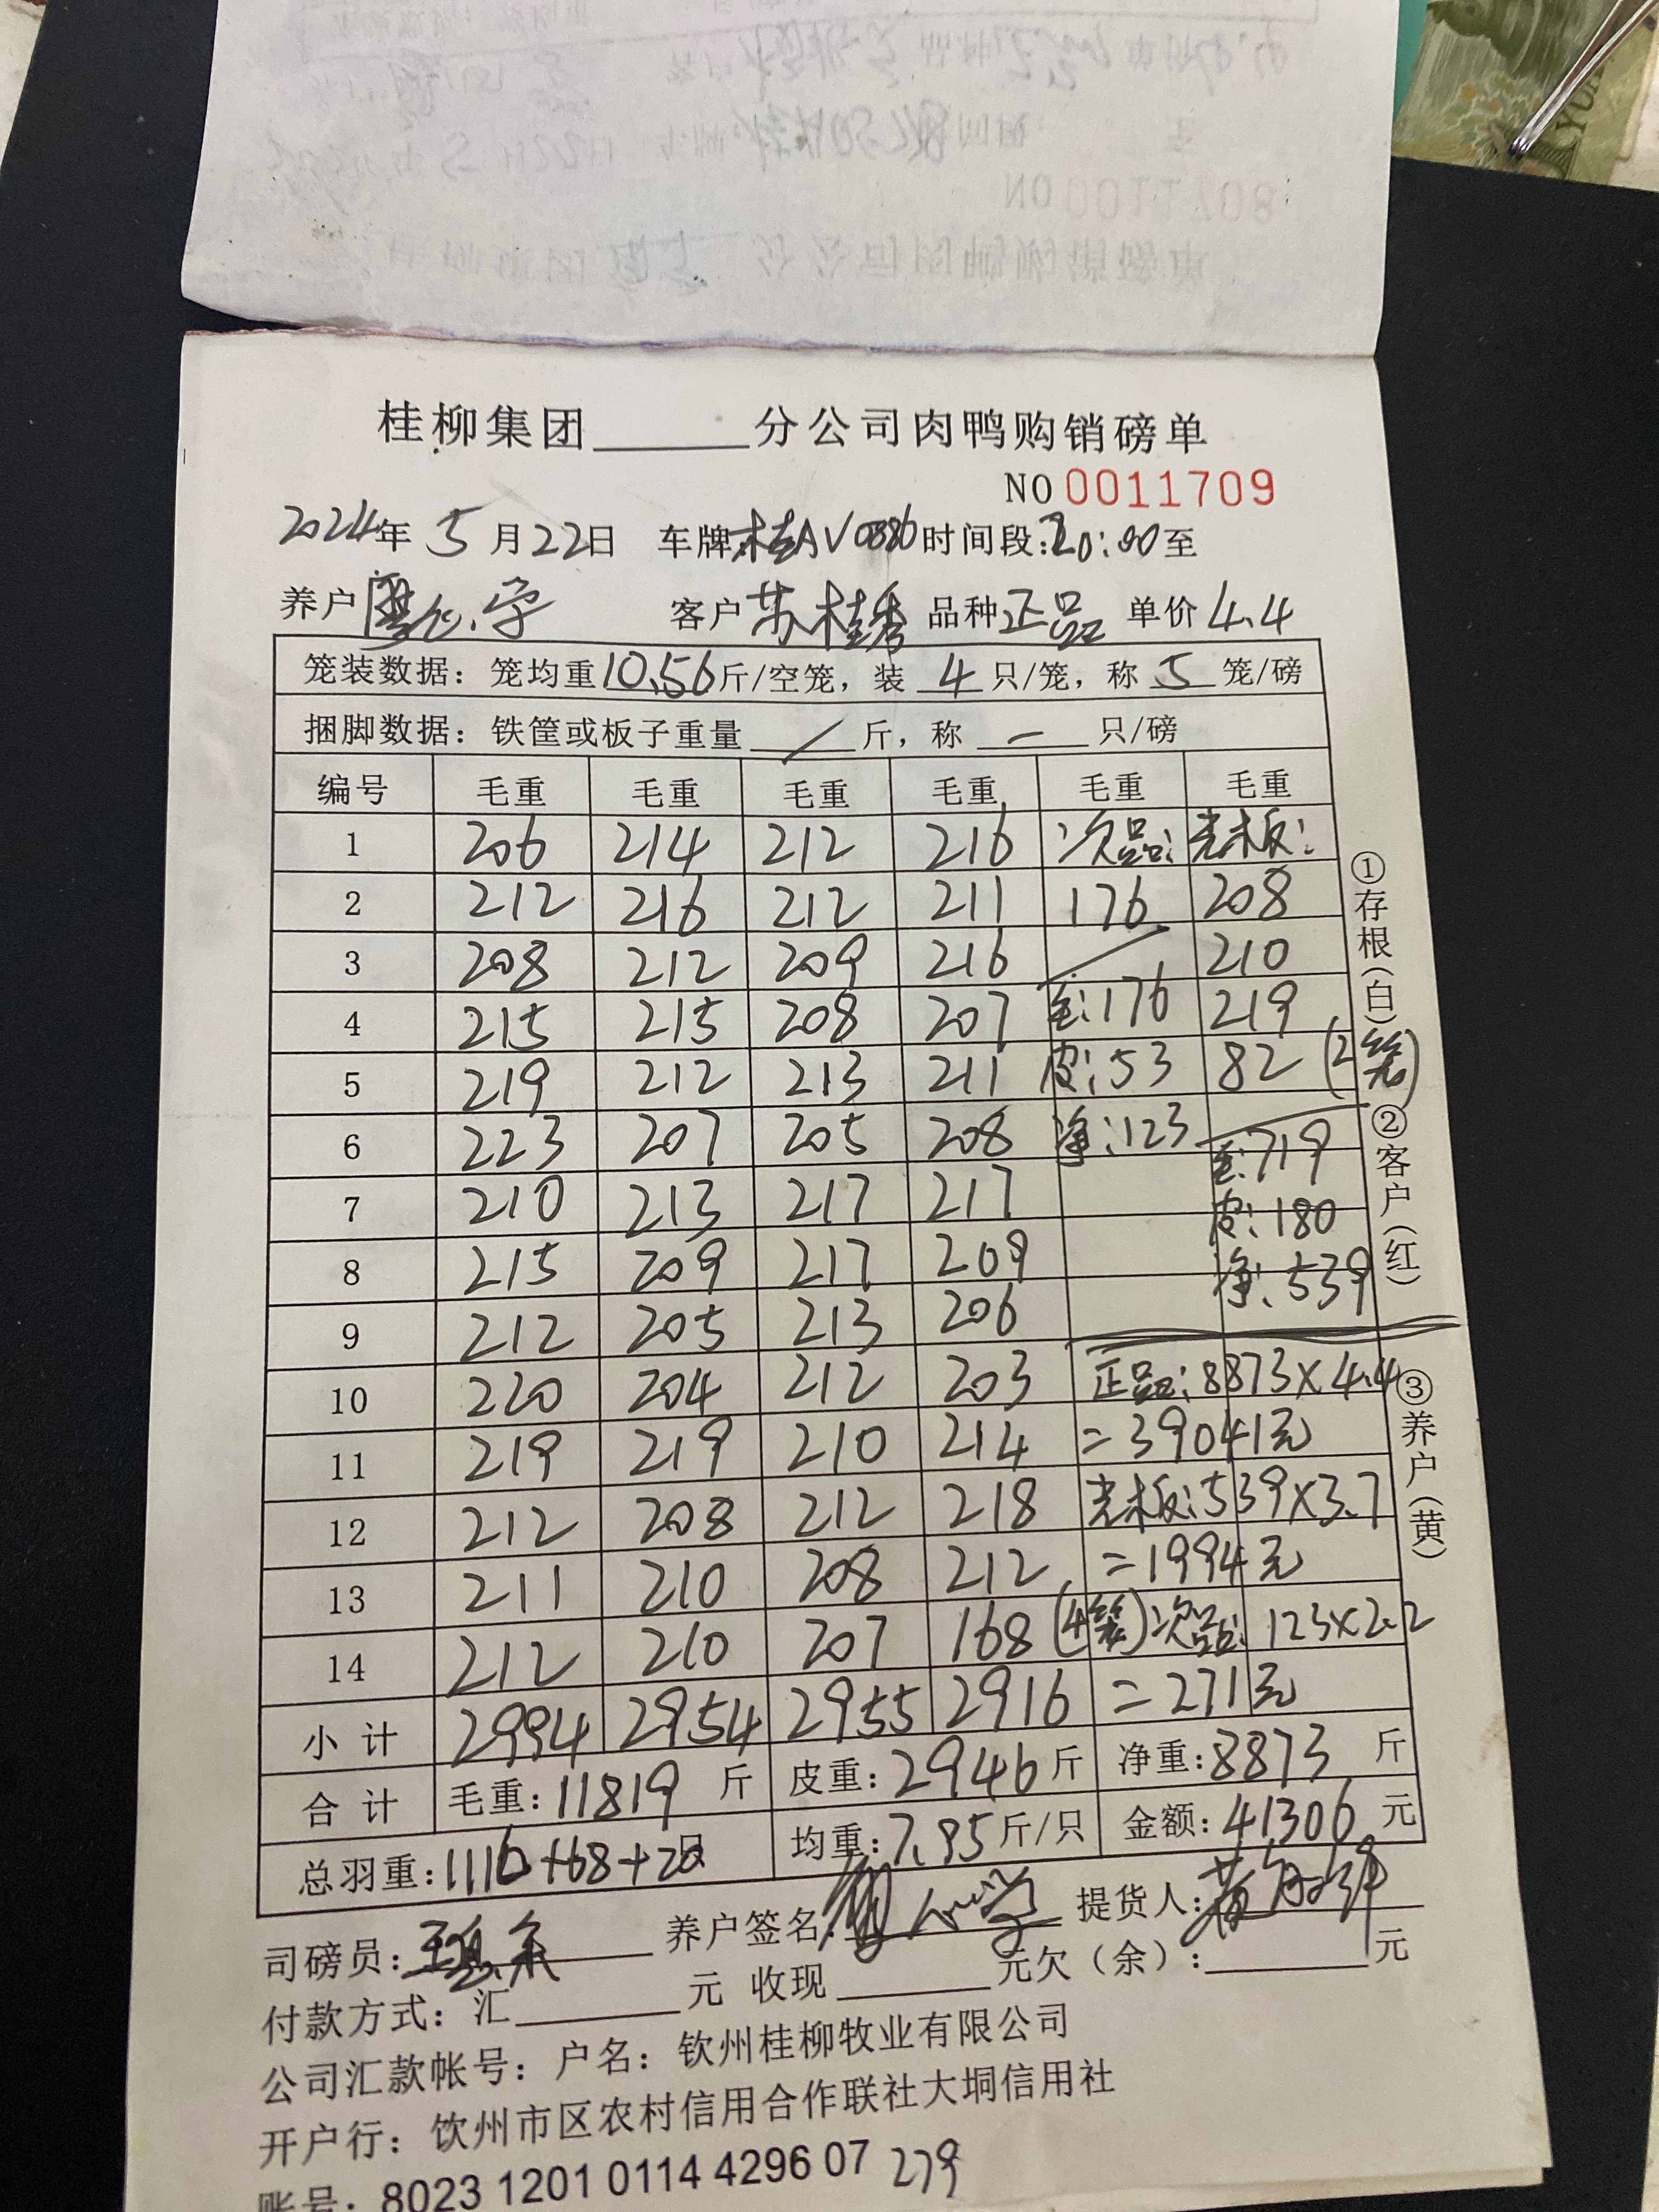 桂柳集团______分公司肉鸭购销磅单
NO 0011709
2024年 5 月 22日 车牌:桂AV0386 时间段:20:00至
养户 客户 苏桂秀 品种 正品 单价 4.4
笼装数据: 笼均重 10.56 斤/空笼, 装 4 只/笼, 称 5 笼/磅
捆脚数据: 铁筐或板子重量 / 斤, 称 — 只/磅
编号 毛重 毛重 毛重 毛重 毛重 毛重
1 206 214 212 216 次品: 光板:
2 212 216 212 211 176 208
3 208 212 209 216 210
4 215 215 208 207 毛:176 219
5 219 212 213 211 皮:53 82 (2笼)
6 223 207 205 208 净:123 毛:719
7 210 213 217 217 皮:180
8 215 209 217 209 净:539
9 212 205 213 206
10 220 204 212 203 正品:8873×4.4
11 219 219 210 214 =39041元
12 212 208 212 218 光板:539×3.7
13 211 210 208 212 =1994元
14 212 210 207 168 (4笼) 次品: 123×2.2
小 计 2994 2954 2955 2916 =271元
合 计 毛重: 11819 斤 皮重: 2946 斤 净重: 8873 斤
总羽重: 1116+68+20 均重: 7.95 斤/只 金额: 41306 元
司磅员: 养户签名: 提货人:
付款方式: 汇______元 收现______元欠(余):______元
公司汇款帐号: 户名: 钦州桂柳牧业有限公司
开户行: 钦州市区农村信用合作联社大垌信用社
账号: 8023 1201 0114 4296 07 279
①存根(白)
②客户(红)
③养户(黄)